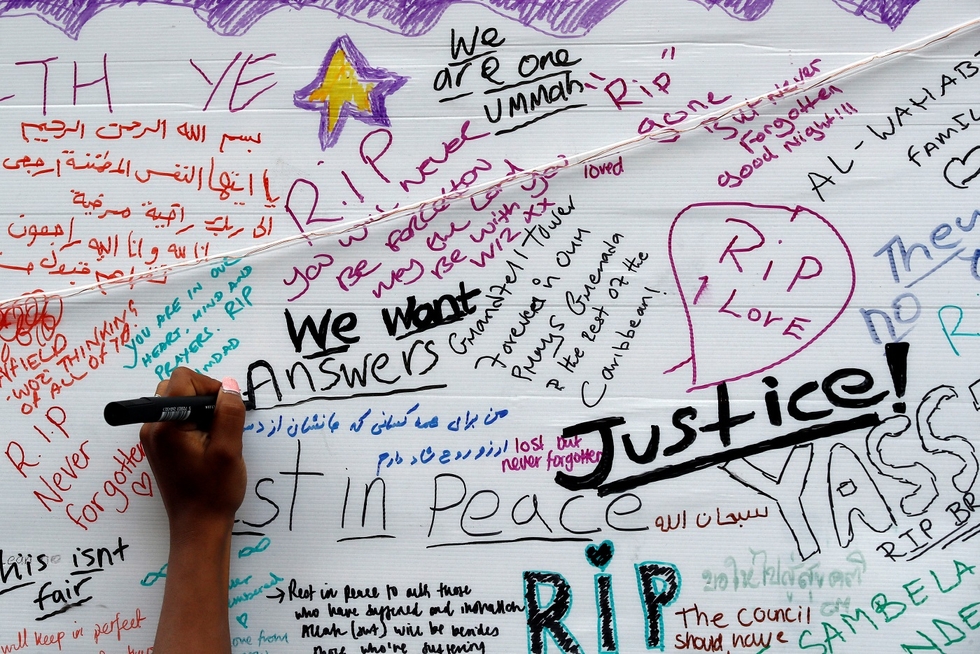 TH YE
We
are one
UMMAH
"RIP"
بسم الله الرحمن الرحيم
يا ايتها النفس المطمئنة ارجعي
الى ربك راضية مرضية
انا لله وانا اليه راجعون
R.I.P
you will never
BE FORGOTTEN
may the Lord
BE with you
WIZ XX
loved
gone
is but Never
Forgotten
good Night!!!
AL-WAHAB
FAMIL
RIP
LOVE
They
no
YOU ARE IN OUR
HEART, MIND AND
PRAYERS. RIP
We want
Answers
Grandfell Tower
Forever in our
Prayers Grenada
& the rest of the
Caribbean!
THINKING
OF ALL OF YO
R.I.P
Never
forgotten
من برای همه کسانی که جانشان از دست
ارزو روح شاد دارم
lost but
never forgotten
Justice!
st in Peace
سبحان الله
YASS
RIP BR
his isnt
fair
will keep in perfect
Rest in peace to all those
who have suffered and inshallah
Allah (swt) will be besides
those who're suffering
RIP
The council
should have
SAMBELA